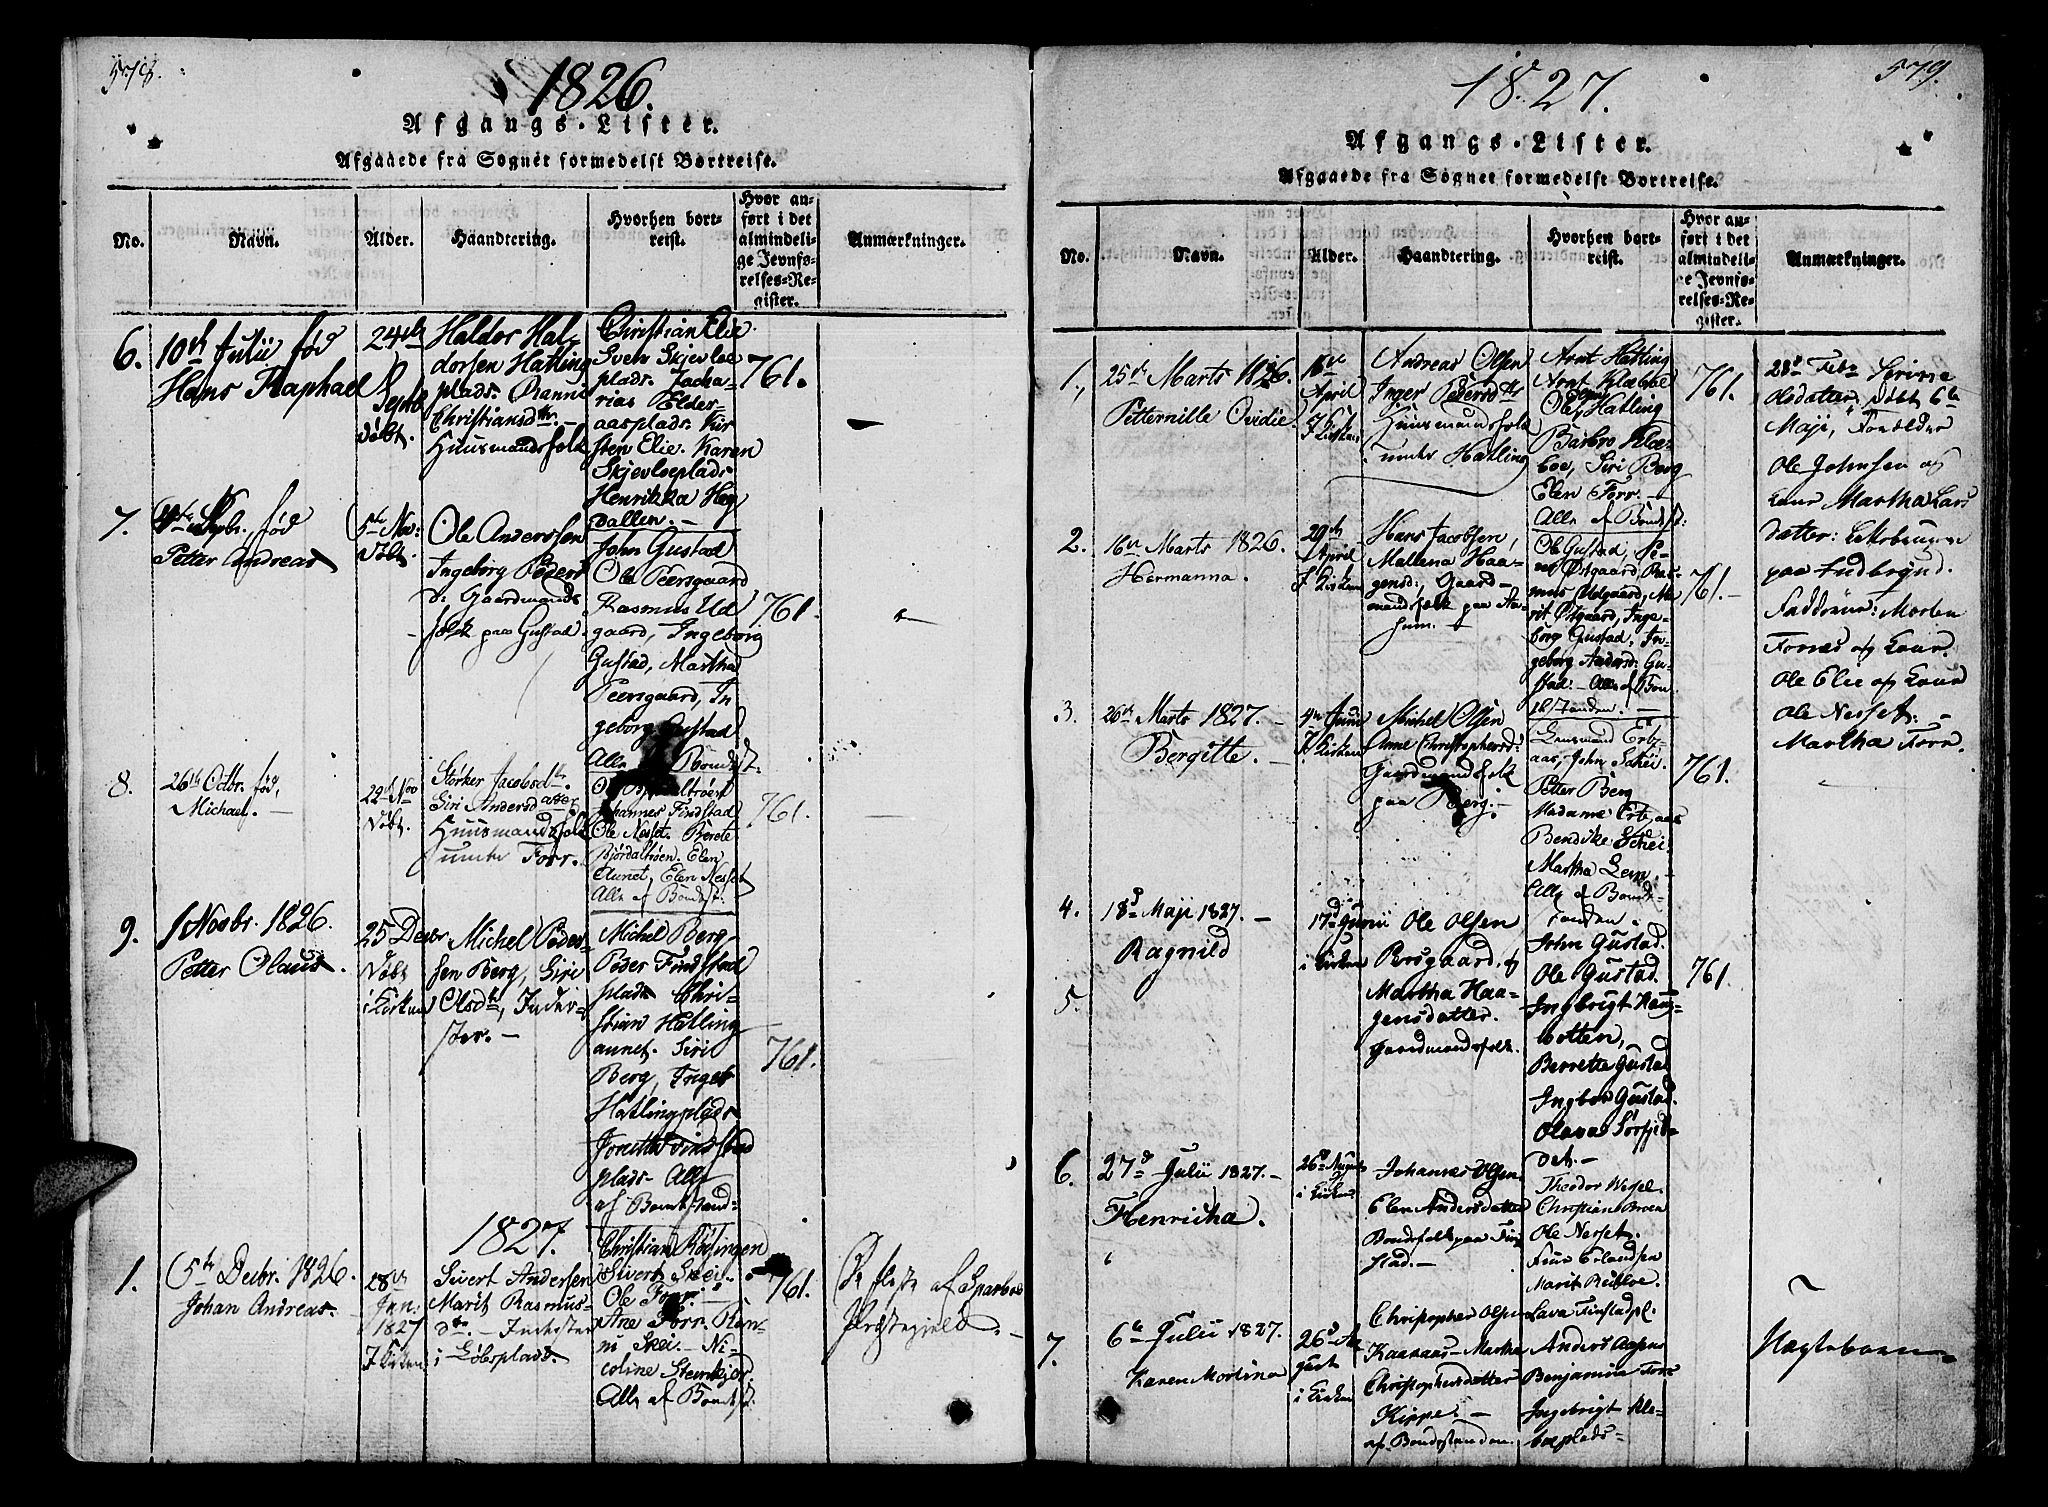 578.
1826.
Afgangs-Lister.
Afgaaede fra Sognet formedelst Bortreise.
No.
Navn.
Alder.
Haandtering.
Hvorhen bort-
reist.
Hvor an-
ført i det
almindeli-
ge Jevnfø-
relses-Re-
gister.
Anmærkninger.
6.
10de Julii fød
Hans Raphael
24de
Septb
døbt.
Haldor Hal-
dorsen Hatling
plads.
Christiansdtr.
Huusmandsfolk
Christian Elie
Sven Skjevloe
plads. Zacha-
rias Elder-
aasplads. Kir
sten Elie. Karen
Skjevloeplads
Henrikka Heg
dallen.
761.
7.
Septbr. fød
Petter Andreas
5te No:
døbt.
Ole Anderssen
Ingeborg Peders
d: Gaardmands
folk paa Gustad
John Gustad
Ole Peersgaard
Rasmus Ud
gaard, Ingeborg
Gustad, Martha
Peersgaard, In
geborg Gustad
Alle af Bondest.
761.
8.
26de Octbr. fød,
Michael.
døbt.
Størker Jacobs
Siri Andersdatter
Huusmandsfolk
under Forr.
Johannes Findstad
Ole Nesset. Berete
Bjørdaltrøen. Elen
Aunet, Elen Nesset
Alle af Bondest.
761.
9.
1 Novbr. 1826.
Petter Olaus.
25 Decbr
døbt
i Kirken
Michel Peder-
sen Berg, Siri
Olsdtr, Inder-
ster.
Michel Berg,
Peder Findstad
plads Chri-
stian Hatling
aunet. Siri
Berg, Ingeb
Hatlingplads
Jonetta Findstad
plads - Alle
af Bondestand
761.
1827.
1.
5te Decbr. 1826.
Johan Andreas.
28de
Jan:
1827
I Kirken
Sivert Andersen
Marit Rasmus-
dtr. - Inderster
i Løbsplads.
Christian Røsingen
Sivert Skei.
Ole Forr.
Ane Forr.
Skei. - Ni-
coline Steenkjer.
Alle af Bondest.
761.
De fleste af Sparboe
Præstegield.
579.
1827.
Afgangs-Lister.
Afgaaede fra Sognet formedelst Bortreise.
No.
Navn.
Alder.
Haandtering.
Hvorhen bort-
reist.
Hvor an-
ført i det
almindeli-
ge Jevnfø-
relses-Re-
gister.
Anmærkninger.
1.
25de Marts 1826.
Petternille Ovidie.
16de
April
I Kirken
Andreas Olsen
Inger Pedersdtr
Huusmandsfolk
under Hatling
Arnt Hatling
Arnt Klæboe
Ole Hatling
Barbro Klæ-
boe, Siri Berg
Elen Forr.
Alle af Bondest:
761.
28de Feb
Olsdatter, døbt 6te
Maji, Forældre
Ole Johnsen og
Kone Martha Lars
datter:
paa Indbrynd.
Faddrene: Morten
Forred og Kone.
Ole Elie og Kone
Ole Nesset.
Martha Forr.
2.
16de Marts 1826.
Hermanna.
29de
April
I Kirken
Hans Jacobsen,
Mallena Haa-
gensd: Gaard-
mandsfolk paa Aa-
sum.
Ole Gustad,
Østgaard, Ras-
mus Udgaard, Ma
rit Østgaard, Inge-
borg Gustad, In-
geborg Anders: Gu-
stad. - Alle af Bon-
destanden.
761.
3.
26de Marts 1827.
Bergitte.
4de Juni
I Kirken
Michel Olsen
Anne Christophersd:
Gaardmandsfolk
paa Berg.
Lensmand Erb-
aas, John Schei.
Petter Berg
Madame Erbaas
Bendike Schei.
Martha Lein.
Alle af Bonde-
standen.
761.
4.
18de Maji 1827.
Ragnild
17de Junii
i Kirken
Ole Olsen
Rosgaard, og
Martha Haa-
gensdatter.
Gaardmandsfolk.
John Gustad.
Ole Gustad.
Ingbrigt Haug-
botten,
Berrette Gustad
Ingbor Gustad.
761.
5.
6.
27de Julii 1827.
Henricha.
26de August
i Kirken
Johannes Olsen
Elen Andersdatter
Bondefolk paa Fin
stad.
Theodor Wesel.
Christian Broen
Ole Nesset.
Finn Erlandsen
Lava Finstadpl.
7.
6te Julii 1827.
Karen Mortina
26de Au
gust
i Kirken
Christopher Olsen
Kaaaas - Martha
Christophersdatter
Kippe.
af Bondestanden.
Anders Aasum
Benjamin Forr
Ingebrigt Klæ-
boeplads
Uægtebarn